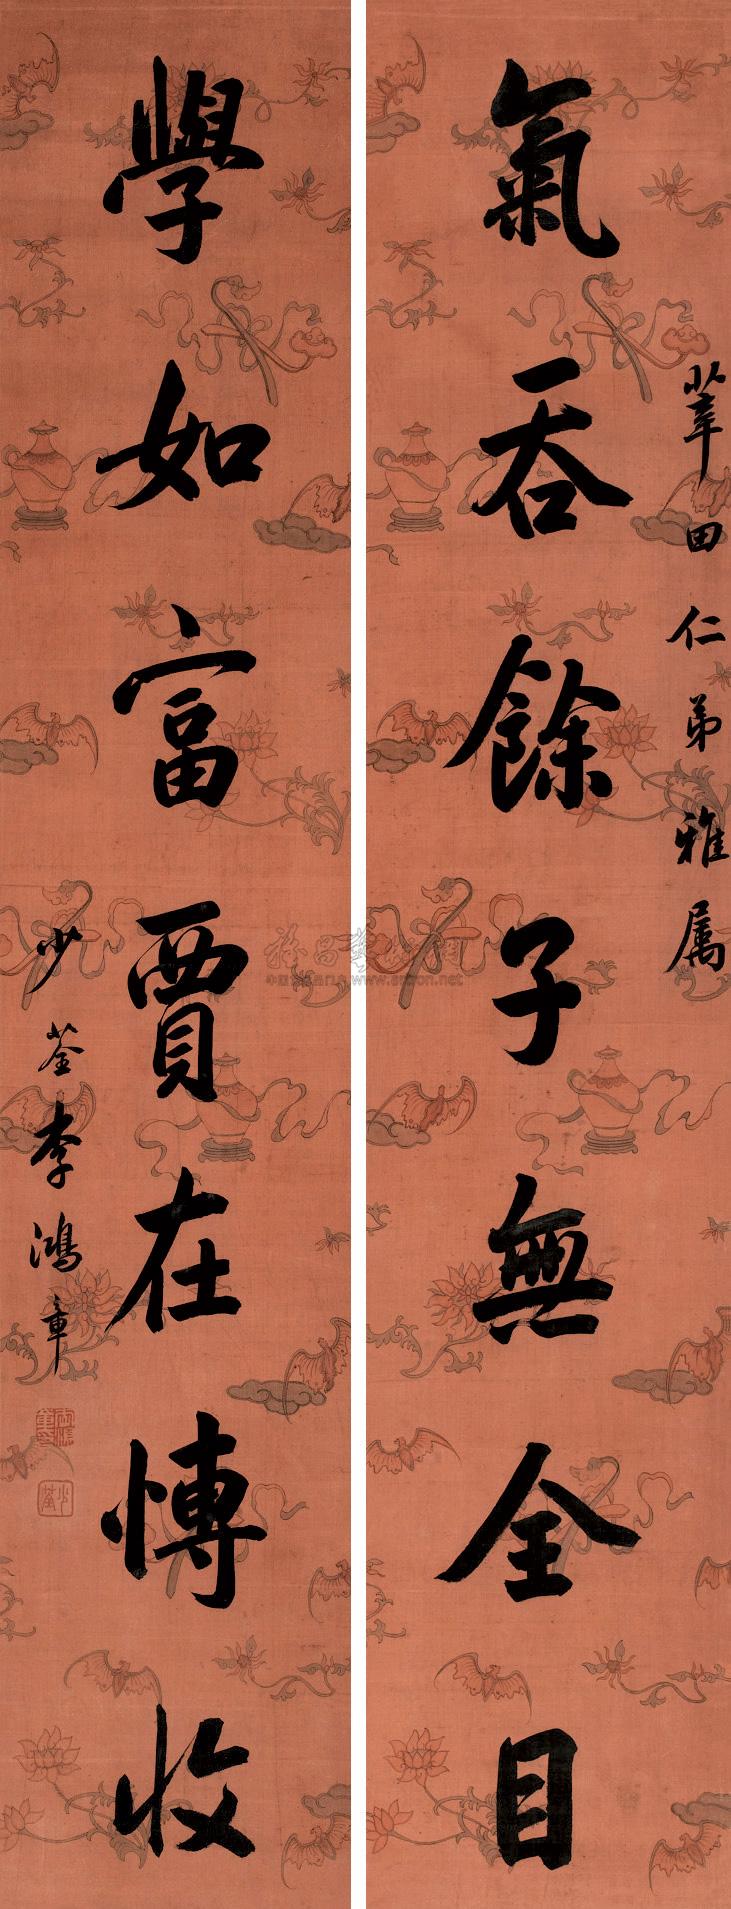 莘田仁弟雅屬
氣吞餘子無全目
學如富賈在博收
少荃李鴻章
www.artron.net